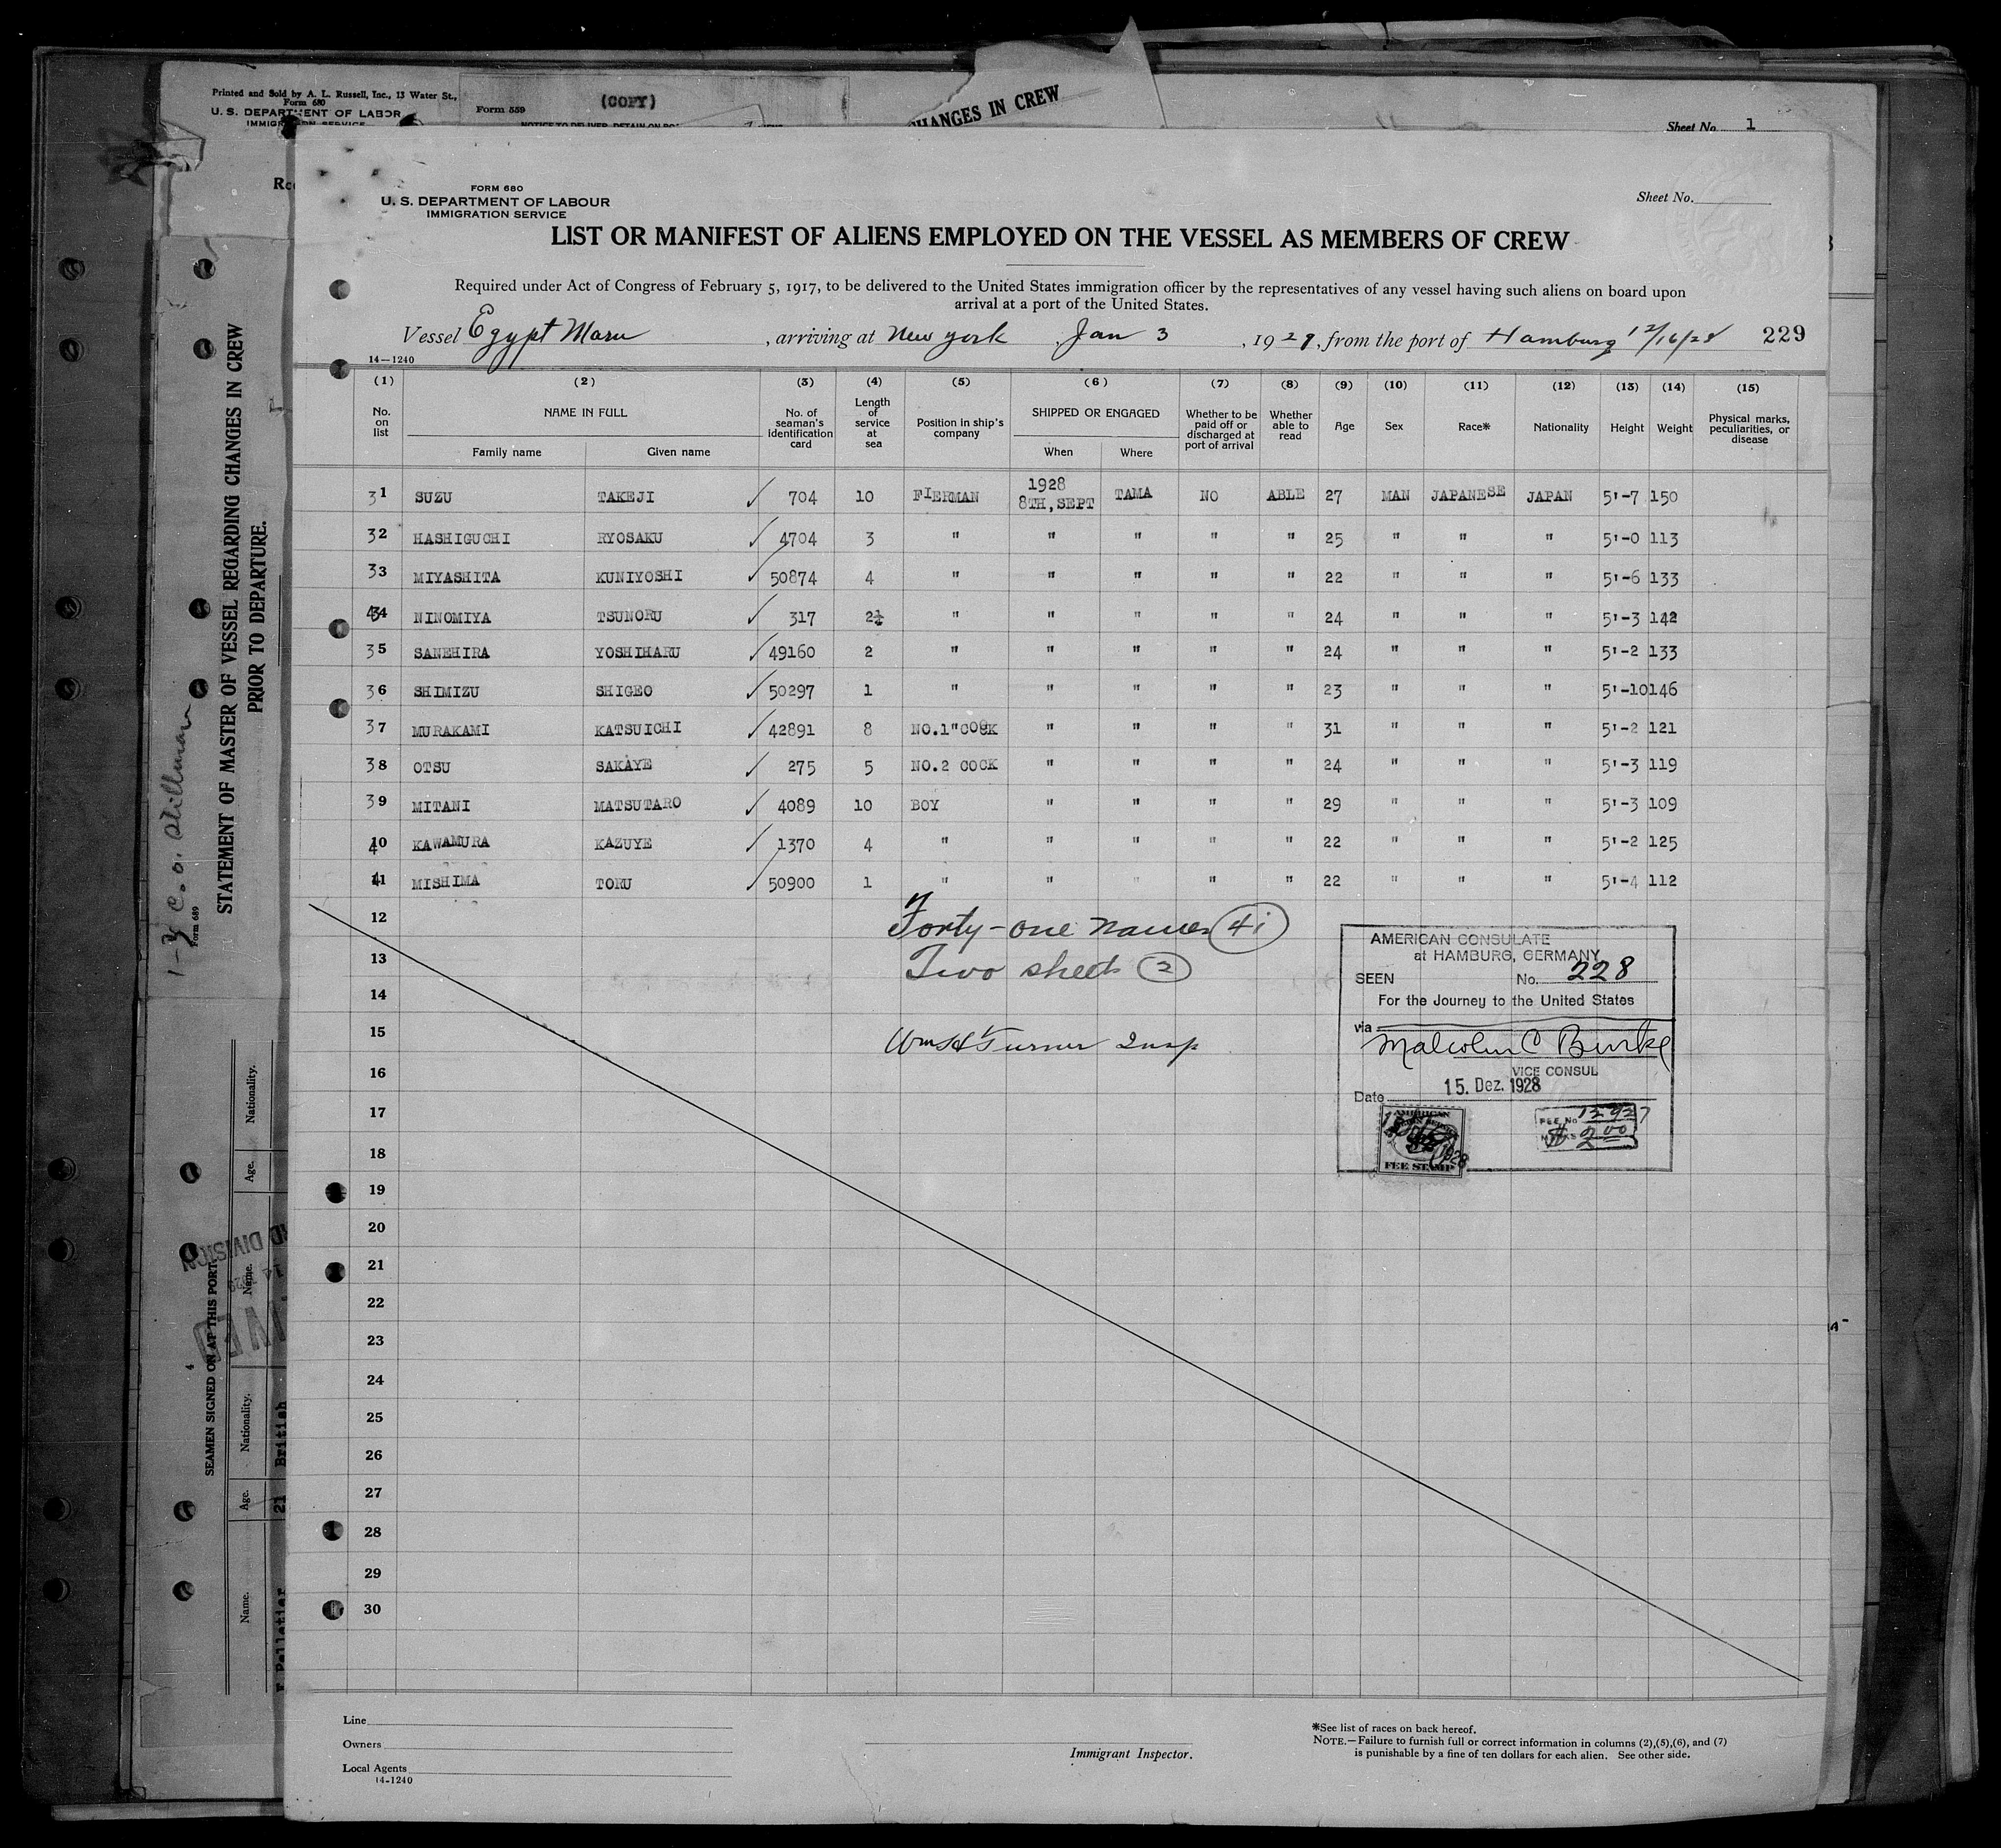 Printed and Sold by A. L. Russell, Inc., 13 Water St.,
Form 680
U. S. DEPARTMENT OF LABOR
IMMIGRATION SERVICE
Form 559
(COPY)
CHANGES IN CREW
Sheet No. 1
FORM 680
U. S. DEPARTMENT OF LABOUR
IMMIGRATION SERVICE
Sheet No.
LIST OR MANIFEST OF ALIENS EMPLOYED ON THE VESSEL AS MEMBERS OF CREW
Required under Act of Congress of February 5, 1917, to be delivered to the United States immigration officer by the representatives of any vessel having such aliens on board upon
arrival at a port of the United States.
Vessel Egypt Maru, arriving at New York Jan 3, 1929, from the port of Hamburg 12/16/28 229
14—1240
(1) (2) (3) (4) (5) (6) (7) (8) (9) (10) (11) (12) (13) (14) (15)
No. on list NAME IN FULL Family name Given name No. of seaman's identification card Length of service at sea Position in ship's company SHIPPED OR ENGAGED When Where Whether to be paid off or discharged at port of arrival Whether able to read Age Sex Race* Nationality Height Weight Physical marks, peculiarities, or disease
31 SUZU TAKEJI ✓ 704 10 FIERMAN 1928 8TH,SEPT TAMA NO ABLE 27 MAN JAPANESE JAPAN 5'-7 150
32 HASHIGUCHI RYOSAKU ✓ 4704 3 " " " " " 25 " " " 5'-0 113
33 MIYASHITA KUNIYOSHI ✓ 50874 4 " " " " " 22 " " " 5'-6 133
34 NINOMIYA TSUNORU ✓ 317 2½ " " " " " 24 " " " 5'-3 142
35 SANEHIRA YOSHIHARU ✓ 49160 2 " " " " " 24 " " " 5'-2 133
36 SHIMIZU SHIGEO ✓ 50297 1 " " " " " 23 " " " 5'-10 146
37 MURAKAMI KATSUICHI ✓ 42891 8 NO.1"COOK " " " " 31 " " " 5'-2 121
38 OTSU SAKAYE ✓ 275 5 NO.2 COCK " " " " 24 " " " 5'-3 119
39 MITANI MATSUTARO ✓ 4089 10 BOY " " " " 29 " " " 5'-3 109
40 KAWAMURA KAZUYE ✓ 1370 4 " " " " " 22 " " " 5'-2 125
41 MISHIMA TORU ✓ 50900 1 " " " " " 22 " " " 5'-4 112
12 Forty-one names 41
13 Two sheets 2
14
15 Wm H Turner Insp
16
17
18
19
20
21
22
23
24
25
26
27
28
29
30
AMERICAN CONSULATE
at HAMBURG, GERMANY
SEEN No. 228
For the Journey to the United States
via
Malcolm C Burke
VICE CONSUL
Date 15. Dez. 1928
AMERICAN
FEE STAMP
1928
FEE No 12927
2.00
Line
Owners
Local Agents
14-1240
Immigrant Inspector.
*See list of races on back hereof.
NOTE.—Failure to furnish full or correct information in columns (2),(5),(6), and (7)
is punishable by a fine of ten dollars for each alien. See other side.
Form 689
STATEMENT OF MASTER OF VESSEL REGARDING CHANGES IN CREW
PRIOR TO DEPARTURE.
SEAMEN SIGNED ON AT THIS PORT
Name. Age. Nationality. Name. Age. Nationality.
Pelletier 21 British
DIVISION